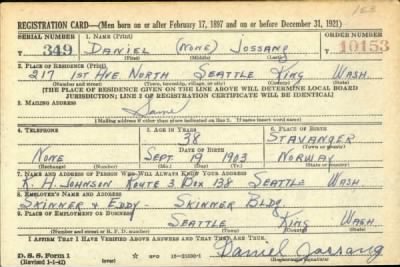 153
REGISTRATION CARD—(Men born on or after February 17, 1897 and on or before December 31, 1921)
SERIAL NUMBER 1. NAME (Print) ORDER NUMBER
T 349 DANIEL (NONE) JOSSANG 10153
(First) (Middle) (Last)
2. PLACE OF RESIDENCE (Print)
217 1st AVE NORTH SEATTLE KING WASH.
(Number and street) (Town, township, village, or city) (County) (State)
[THE PLACE OF RESIDENCE GIVEN ON THE LINE ABOVE WILL DETERMINE LOCAL BOARD
JURISDICTION; LINE 2 OF REGISTRATION CERTIFICATE WILL BE IDENTICAL]
3. MAILING ADDRESS
Same
[Mailing address if other than place indicated on line 2. If same insert word same]
4. TELEPHONE 5. AGE IN YEARS 6. PLACE OF BIRTH
38 STAVANGER
DATE OF BIRTH (Town or county)
NONE SEPT 19 1903 NORWAY
(Exchange) (Number) (Mo.) (Day) (Yr.) (State or country)
7. NAME AND ADDRESS OF PERSON WHO WILL ALWAYS KNOW YOUR ADDRESS
K. H. JOHNSON ROUTE 3 BOX 138 SEATTLE WASH
8. EMPLOYER'S NAME AND ADDRESS
SKINNER & EDDY - SKINNER BLDG.
9. PLACE OF EMPLOYMENT OR BUSINESS
SEATTLE KING WASH.
(Number and street or R. F. D. number) (Town) (County) (State)
I AFFIRM THAT I HAVE VERIFIED ABOVE ANSWERS AND THAT THEY ARE TRUE.
D. S. S. Form 1
(Revised 1-1-42) (over) GPO 16-21630-1 Daniel Jossang